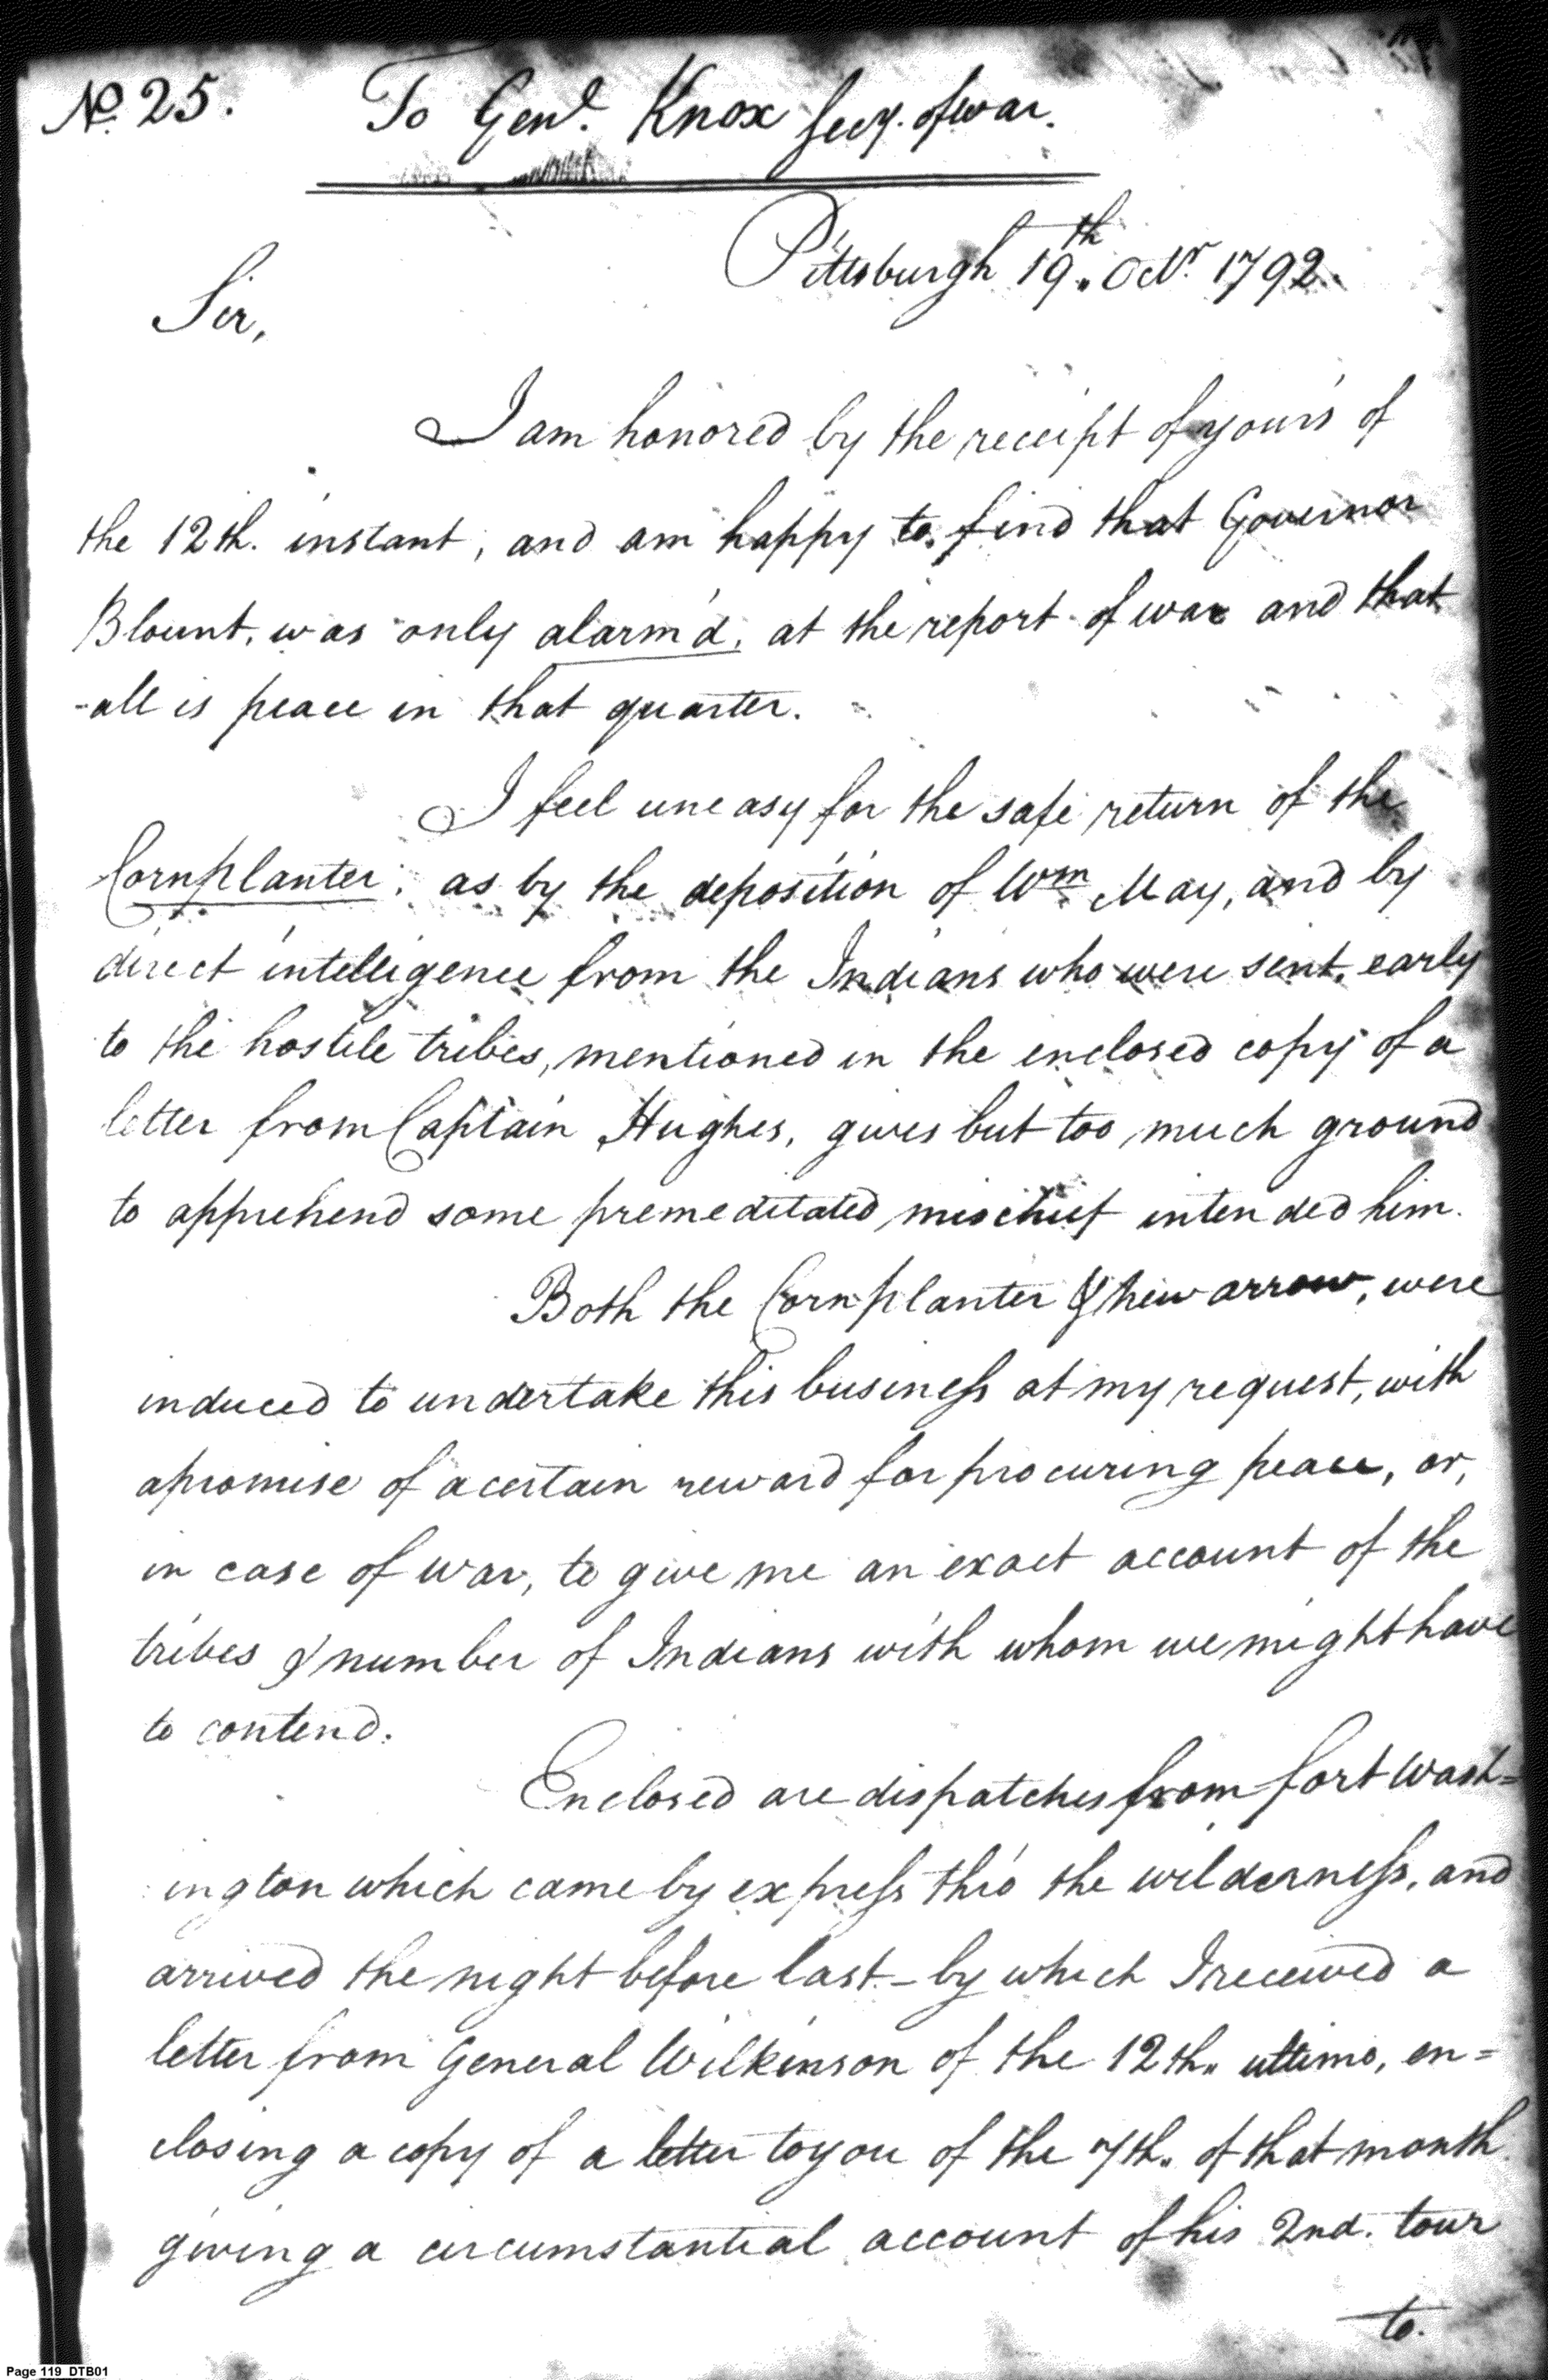 No. 25. To Genl. Knox Secy. of war.
Pittsburgh 19th. Octr. 1792.
Sir,
I am honored by the receipt of yours of
the 12th. instant, and am happy to find that Governor
Blount, was only alarm'd, at the report of war and that
-all is peace in that quarter.
I feel uneasy for the safe return of the
Cornplanter; as by the deposition of Wm. May, and by
direct intelligence from the Indians who were sent, early
to the hostile tribes, mentioned in the enclosed copy of a
letter from Captain Hughes, gives but too much ground
to apprehend some premeditated mischief intended him.
Both the Cornplanter & New arrow, were
induced to undertake this business at my request, with
a promise of a certain reward for procuring peace, or,
in case of war, to give me an exact account of the
tribes & number of Indians with whom we might have
to contend.
Enclosed are dispatches from fort Wash=
ington which came by express thro' the wilderness, and
arrived the night before last - by which I received a
letter from General Wilkinson of the 12th. ultimo, en=
closing a copy of a letter to you of the 7th. of that month
giving a circumstantial account of his 2nd. tour
to.
Page 119 DTB01